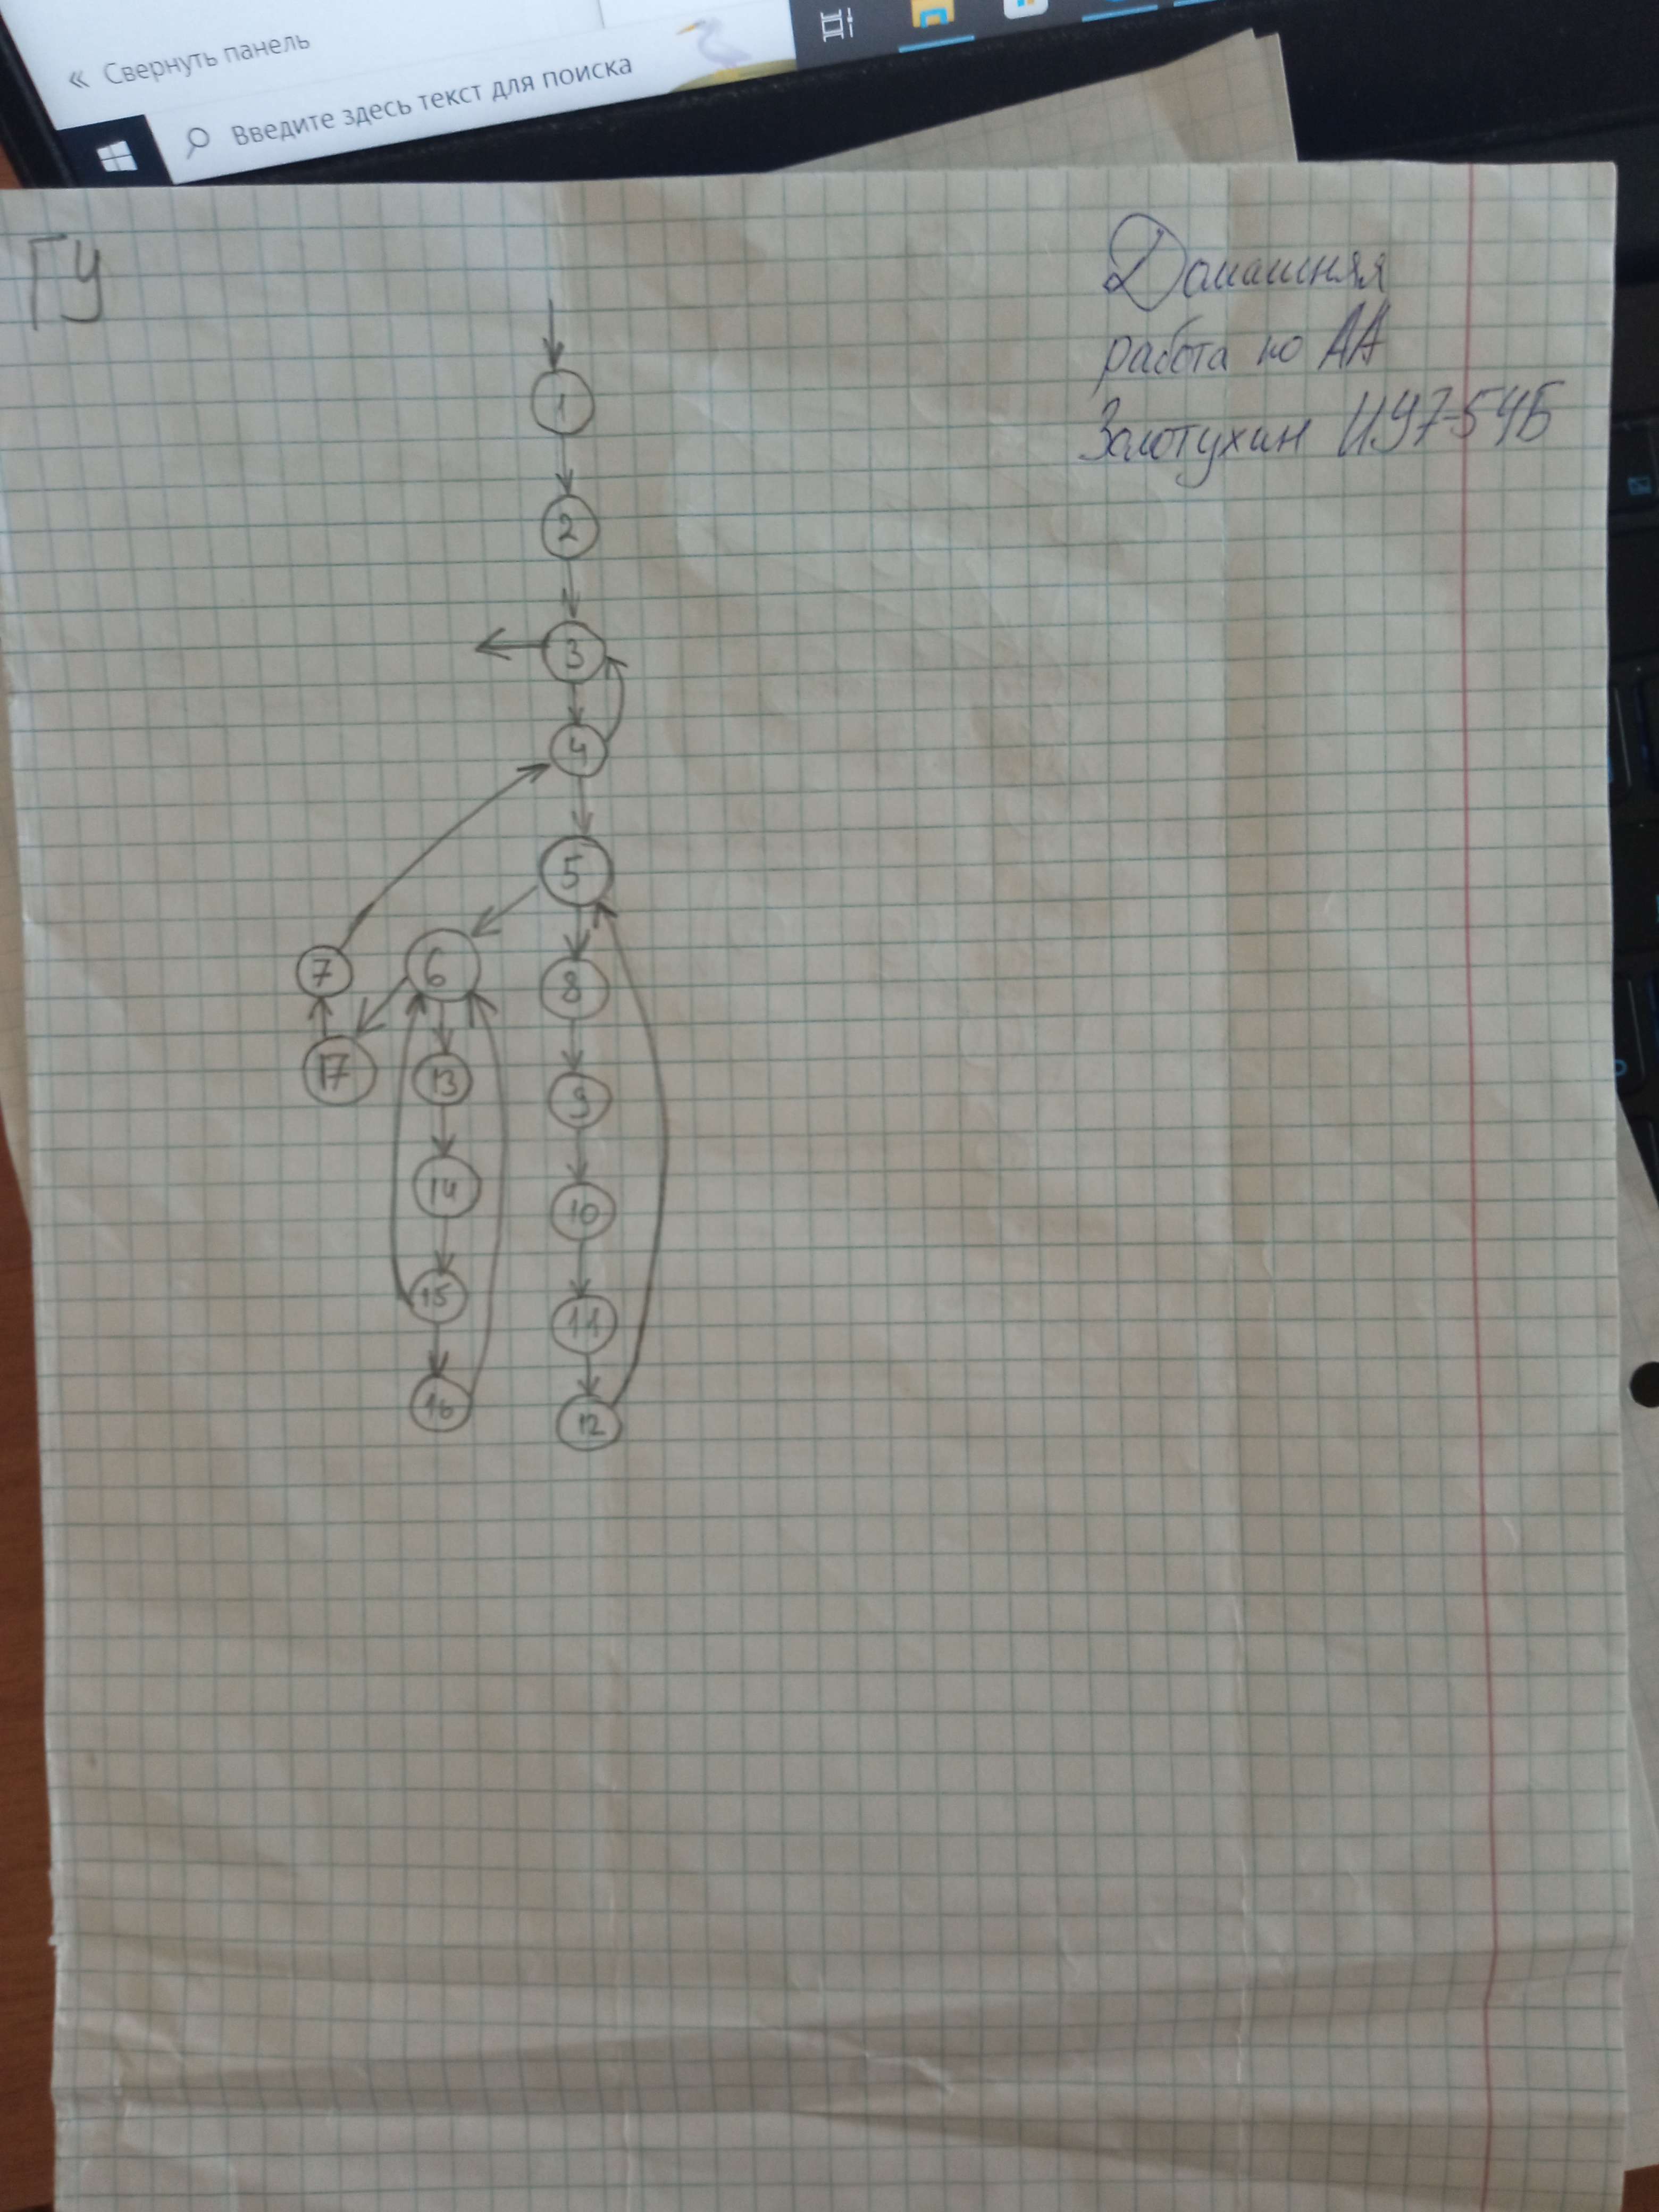 « Свернуть панель
Введите здесь текст для поиска
ГУ
Домашняя
работа по АА
Золотухин ИУ7-54Б
1
2
3
4
5
7
6
8
17
13
9
14
10
15
11
16
12